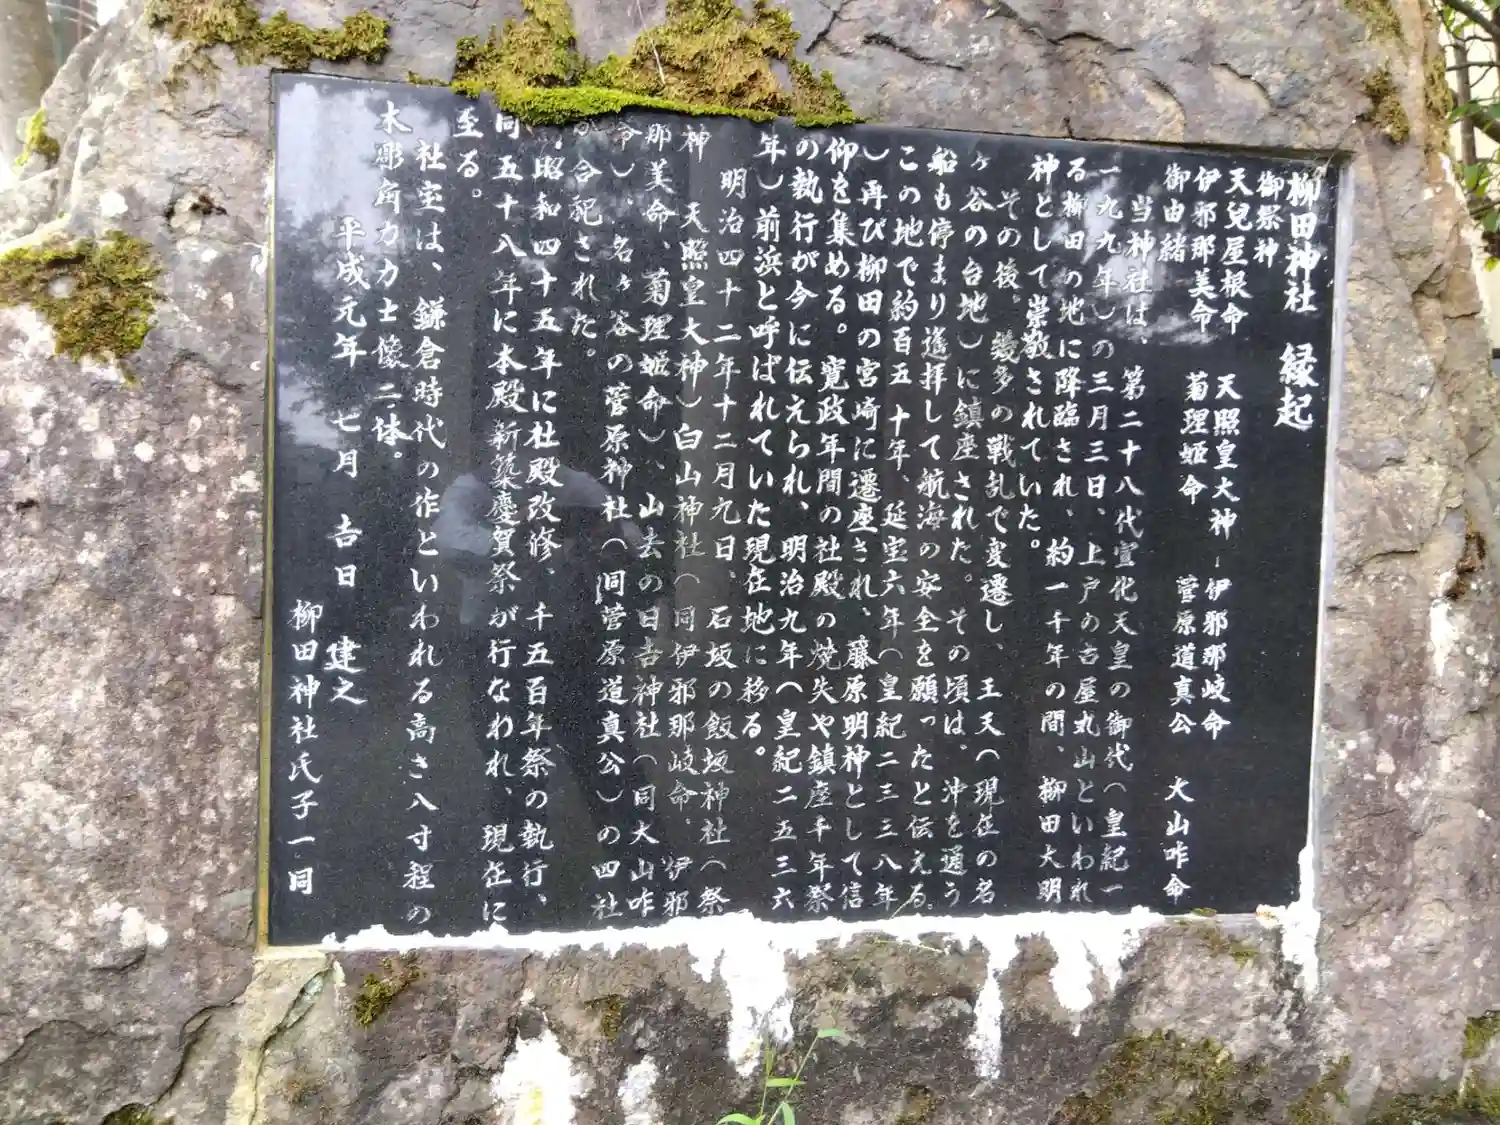 柳田神社　縁起
御祭神
天兒屋根命　天照皇大神　伊邪那岐命
伊邪那美命　菊理姫命　菅原道真公　大山咋命
御由緒
当神社は、第二十八代宣化天皇の御代（皇紀一
一九九年）の三月三日、上戸の古屋丸山といわれ
る柳田の地に降臨され、約一千年の間、柳田大明
神として崇敬されていた。
その後。幾多の戦乱で変遷し、王天（現在の名
ヶ谷の台地）に鎮座された。その頃は。沖を通う
船も停まり遙拝して航海の安全を願ったと伝える。
この地で約百五十年、延宝六年（皇紀二三三八年
）再び柳田の宮崎に遷座され、藤原明神として信
仰を集める。寛政年間の社殿の焼失や鎮座千年祭
の執行が今に伝えられ、明治九年（皇紀二五三六
年）前浜と呼ばれていた現在地に移る。
明治四十二年十二月九日、石坂の飯坂神社（祭
神　天照皇大神）白山神社（同伊邪那岐命、伊邪
那美命、菊理姫命）、山去の日吉神社（同大山咋
命）、名ヶ谷の菅原神社（同菅原道真公）の四社
が合祀された。
昭和四十五年に社殿改修、千五百年祭の執行、
同五十八年に本殿新築慶賀祭が行なわれ、現在に
至る。
社宝は、鎌倉時代の作といわれる高さ八寸程の
木彫角力力士像二体。
平成元年　七月　吉日　建之
柳田神社氏子一同